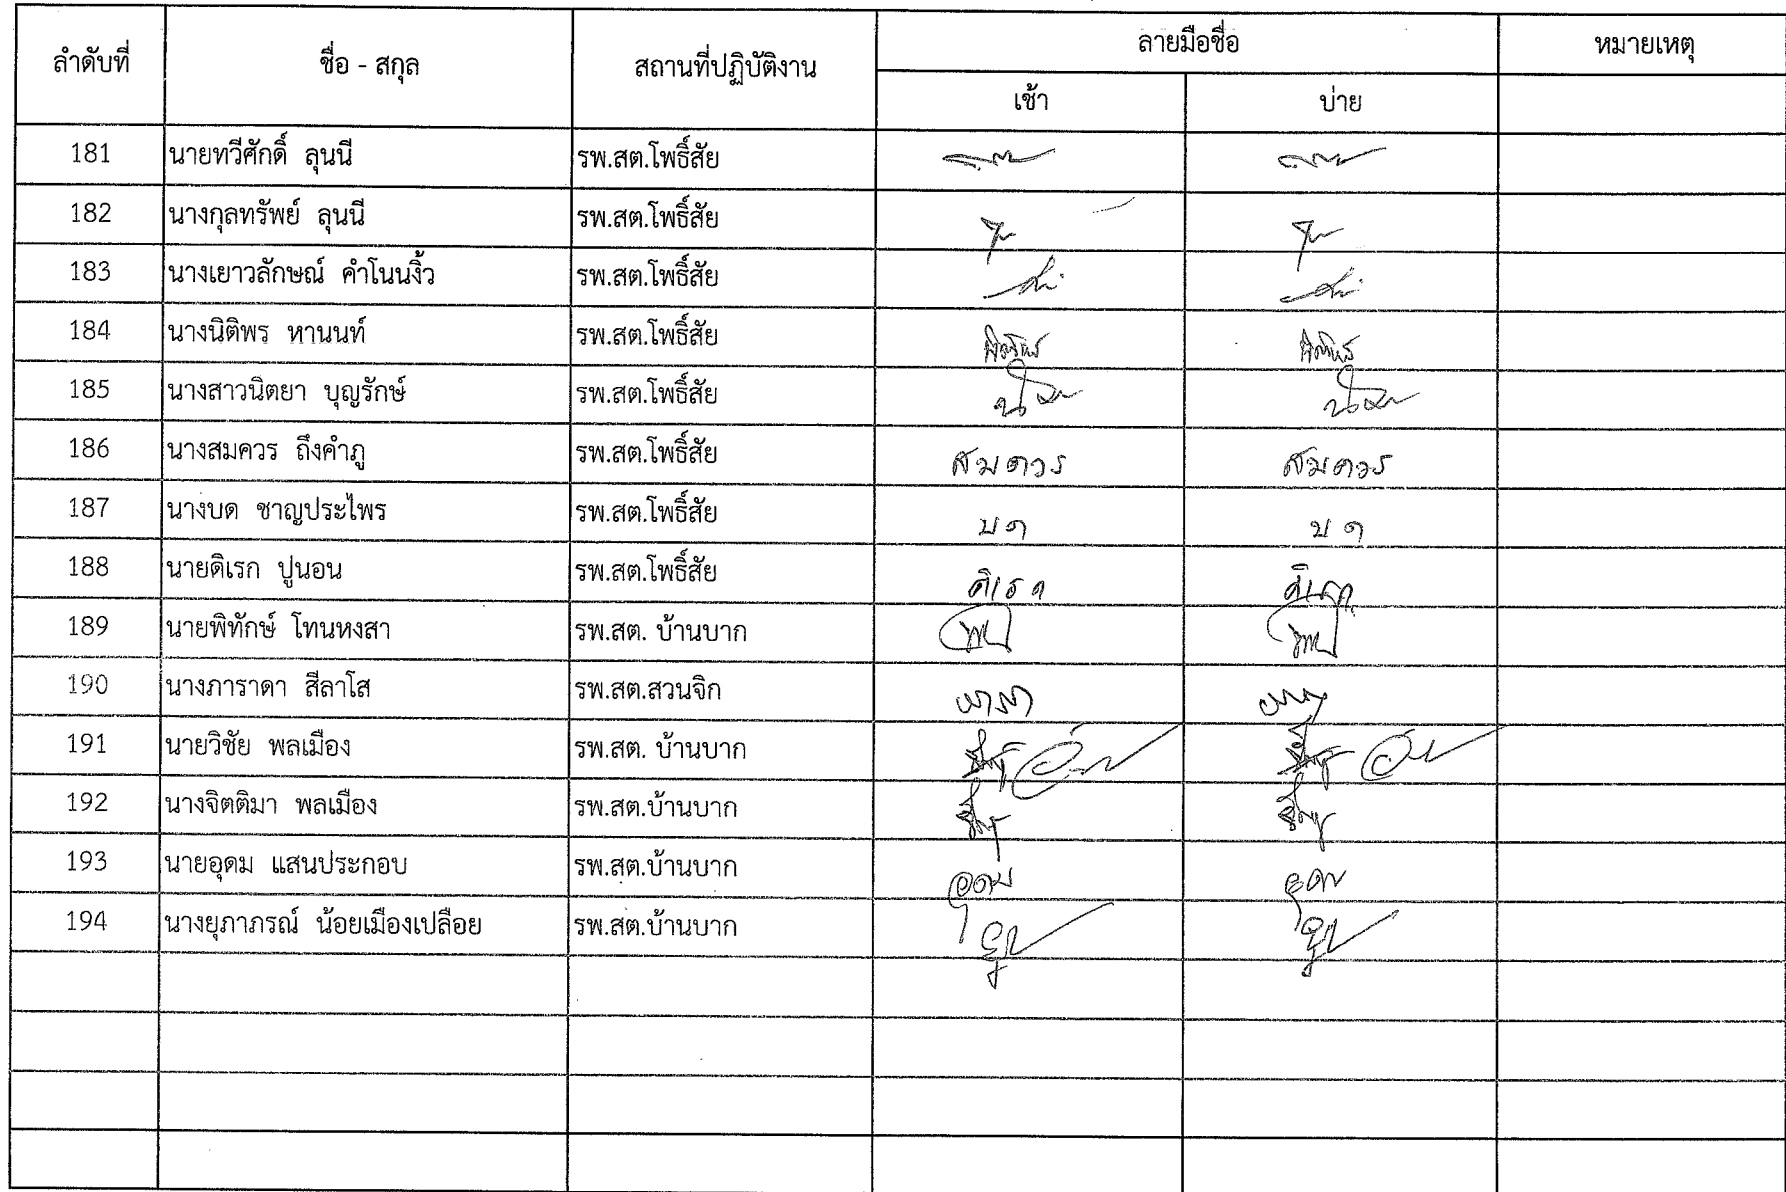 ลำดับที่ ชื่อ - สกุล สถานที่ปฏิบัติงาน ลายมือชื่อ หมายเหตุ
เช้า บ่าย
181 นายทวีศักดิ์ ลุนนี รพ.สต.โพธิ์สัย
182 นางกุลทรัพย์ ลุนนี รพ.สต.โพธิ์สัย
183 นางเยาวลักษณ์ คำโนนงิ้ว รพ.สต.โพธิ์สัย
184 นางนิติพร หานนท์ รพ.สต.โพธิ์สัย
185 นางสาวนิตยา บุญรักษ์ รพ.สต.โพธิ์สัย
186 นางสมควร ถึงคำภู รพ.สต.โพธิ์สัย สมควร สมควร
187 นางบด ชาญประไพร รพ.สต.โพธิ์สัย บด บด
188 นายดิเรก ปูนอน รพ.สต.โพธิ์สัย ดิเรก ดิเรก
189 นายพิทักษ์ โทนหงสา รพ.สต. บ้านบาก
190 นางภาราดา สีลาโส รพ.สต.สวนจิก
191 นายวิชัย พลเมือง รพ.สต. บ้านบาก
192 นางจิตติมา พลเมือง รพ.สต.บ้านบาก
193 นายอุดม แสนประกอบ รพ.สต.บ้านบาก อุดม อุดม
194 นางยุภาภรณ์ น้อยเมืองเปลือย รพ.สต.บ้านบาก